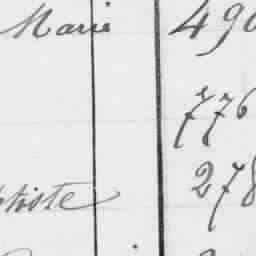 Marie 490
776
ptiste 278